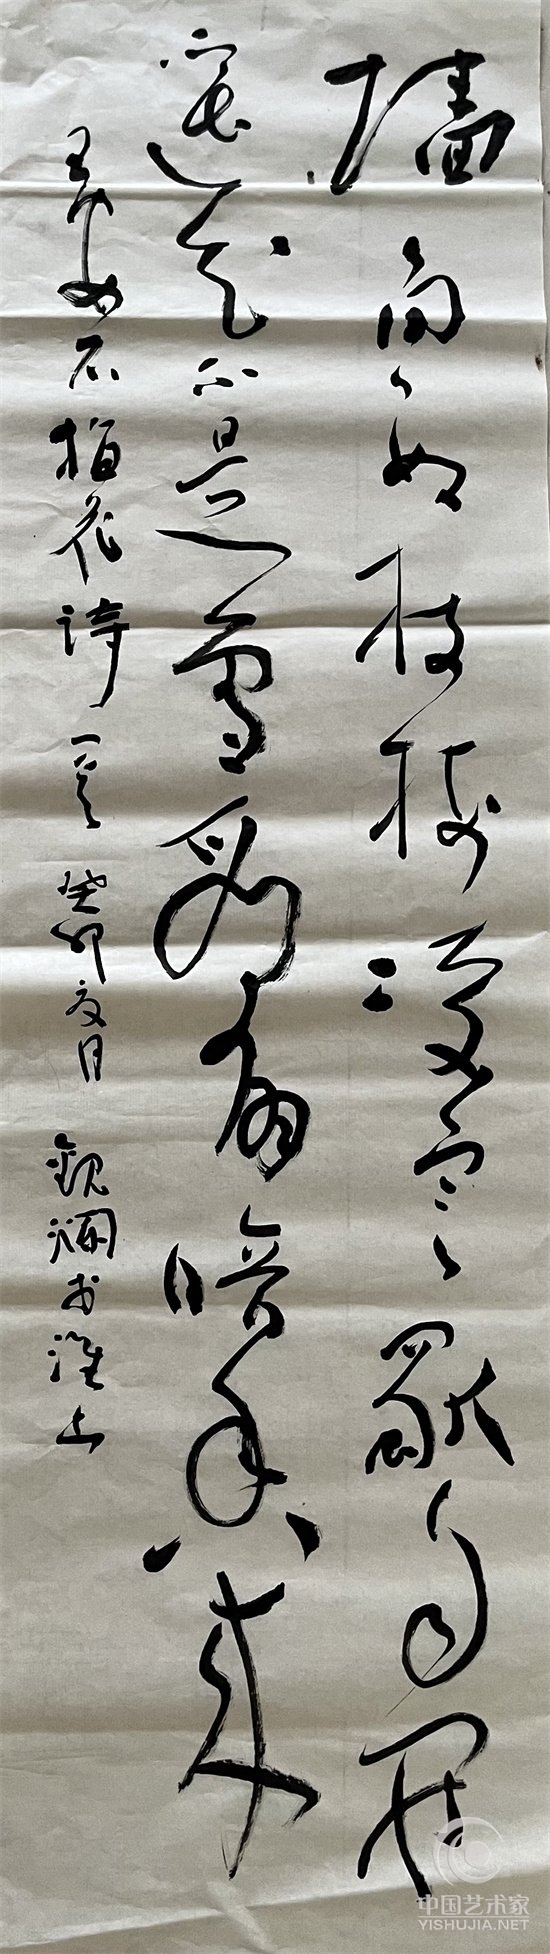 墙角数枝梅凌寒独自开
遥知不是雪为有暗香来
王安石梅花诗一首 癸卯夏月 观澜于淮上
中国艺术家
YISHUJIA.NET